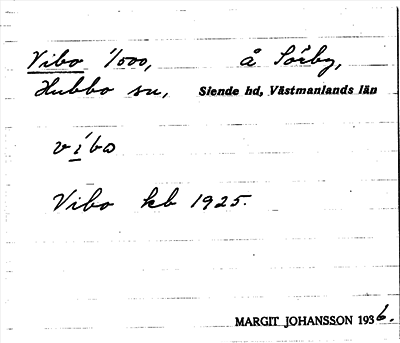 Vibo 1/500, å Sörby,
Hubbo sn, Siende hd, Västmanlands län
víbω
Vibo kb 1925.
MARGIT JOHANSSON 1936.